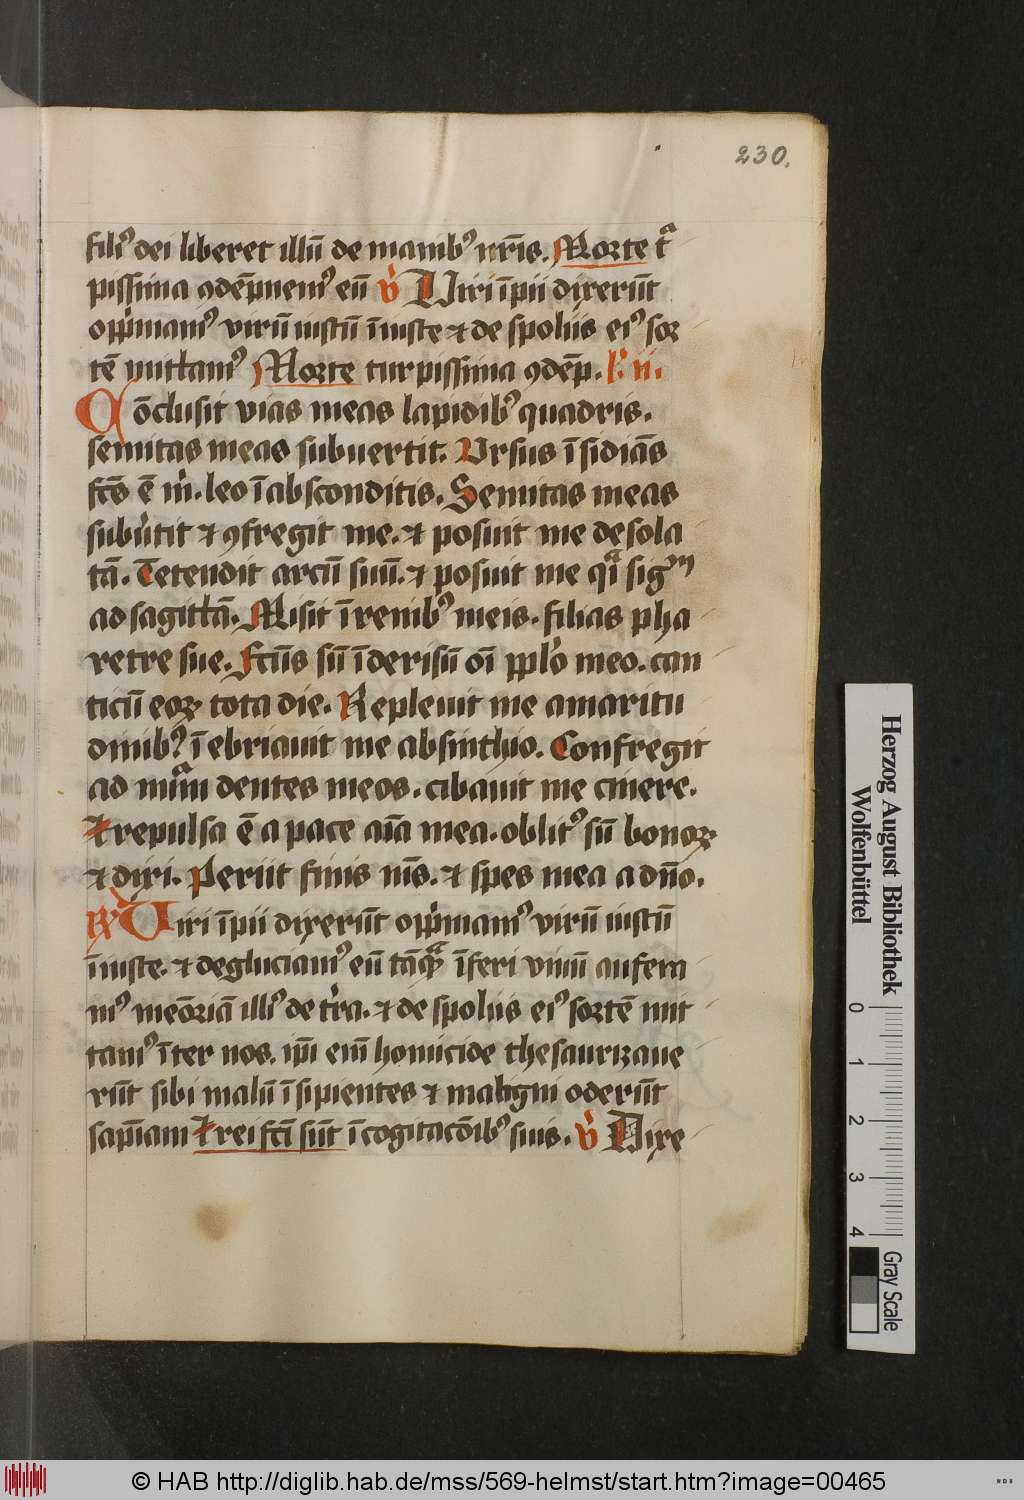 230.
filiꝰ dei liberet illū de manibꝰ nr̄is. Morte tᵃ
pissima ꝯdēpnemꝰ eū v̇ Uiri īpii dixerūt
opp̄mamꝰ virū iustū īiuste ⁊ de spoliis eiꝰ sor
tē mittamꝰ Morte turpissima ꝯdēp. Lc̄ ii.
Cōclusit vias meas lapidibꝰ quadris.
semitas meas subuertit. Ursus īsidiās
fcūs ē m̄. leo ī absconditis. Semitas meas
subu̇tit ⁊ ꝯfregit me. ⁊ posuit me desola
tā. Tetendit arcū suū. ⁊ posuit me qᵃi sigᵐ
ad sagittā. Misit ī renibꝰ meis. filias pha
retre sue. Fcūs sū ī derisū oī ppl̄o meo. can
ticū eoꝝ tota die. Repleuit me amaritu
dinibꝰ īebriauit me absinthio. Confregit
ad nu̅m dentes meos. cibauit me cinere.
⁊ repulsa ē a pace aīa mea. oblitꝰ sū bonoꝝ
⁊ dixi. Periit finis m̄s. ⁊ spes mea a dn̄o.
℟ Uiri īpii dixerūt opp̄mamꝰ virū iustū
īiuste. ⁊ degluciamꝰ eū tāqᵃ īferi viuū aufera
mꝰ meōriā illiꝰ de tr̄a. ⁊ de spoliis eiꝰ sortē mit
tamꝰ īter nos. ip̄i eni̅ homicide thesaurizaue
rūt sibi malū īsipientes ⁊ maligni oderūt
sap̄iam ⁊ rei fcī sūt ī cogitacōibꝰ suis. v̇ Dixe
Herzog August Bibliothek
Wolfenbüttel
0 1 2 3 4
Gray Scale
© HAB http://diglib.hab.de/mss/569-helmst/start.htm?image=00465